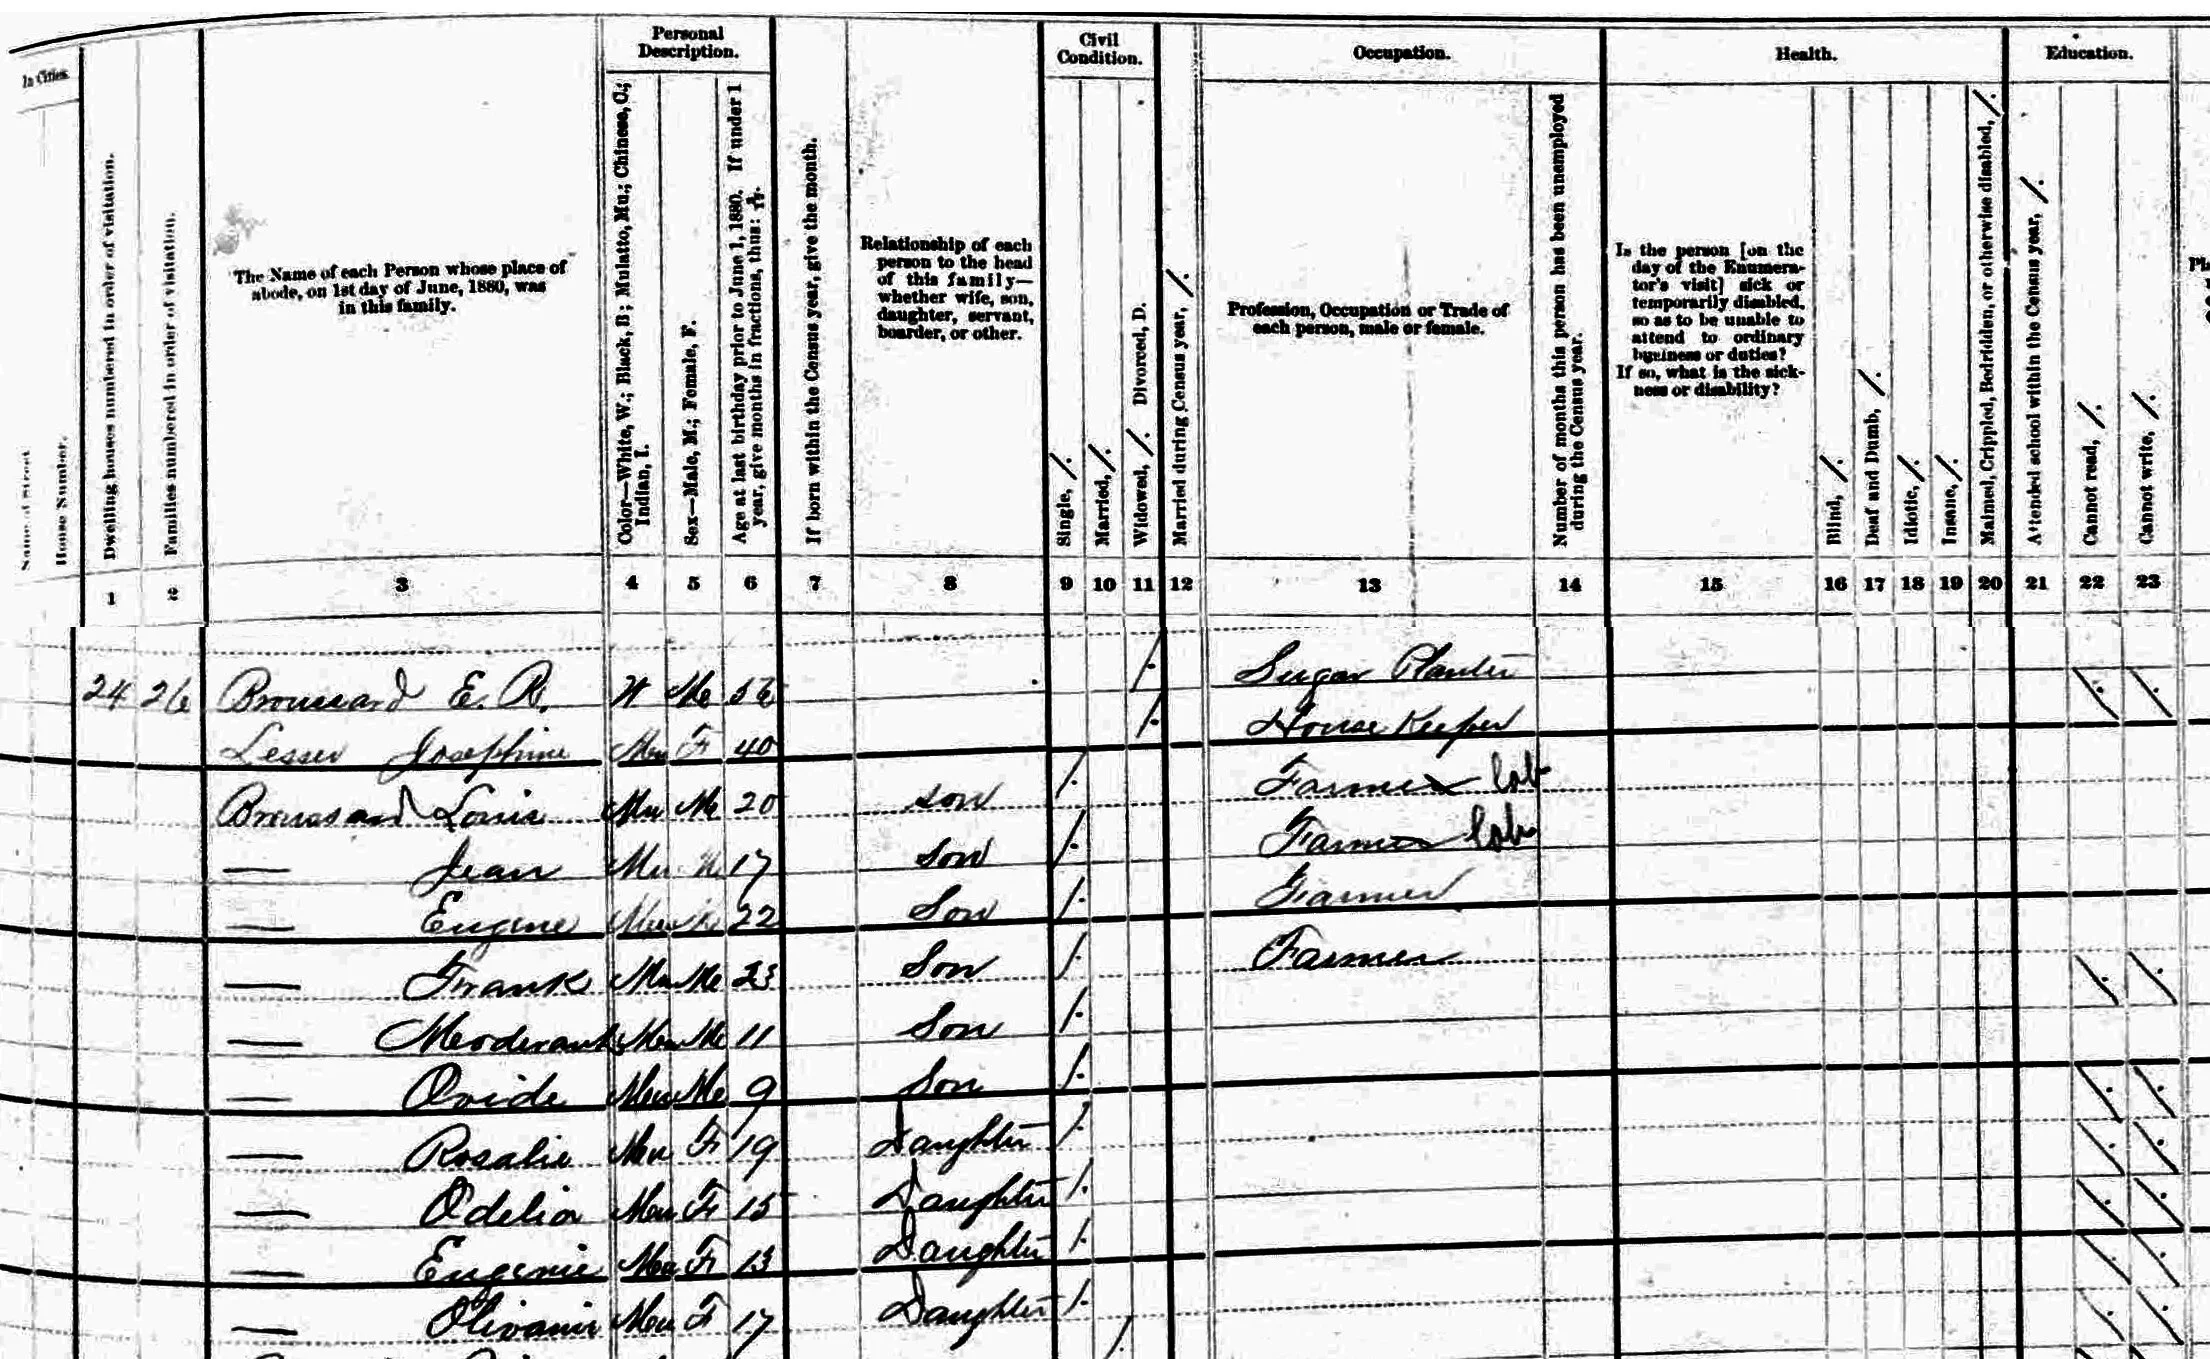 Personal Description.
Civil Condition.
Occupation.
Health.
Education.
In Cities.
Name of Street
House Number.
Dwelling houses numbered in order of visitation.
Families numbered in order of visitation.
The Name of each Person whose place of abode, on 1st day of June, 1880, was in this family.
Color—White, W.; Black, B; Mulatto, Mu.; Chinese, C.; Indian, I.
Sex—Male, M.; Female, F.
Age at last birthday prior to June 1, 1880. If under 1 year, give months in fractions, thus:
If born within the Census year, give the month.
Relationship of each person to the head of this family—whether wife, son, daughter, servant, boarder, or other.
Single, /.
Married, /.
Widowed, /. Divorced, D.
Married during Census year, /.
Profession, Occupation or Trade of each person, male or female.
Number of months this person has been unemployed during the Census year.
Is the person [on the day of the Enumerator's visit] sick or temporarily disabled, so as to be unable to attend to ordinary business or duties? If so, what is the sickness or disability?
Blind, /.
Deaf and Dumb, /.
Idiotic, /.
Insane, /.
Maimed, Crippled, Bedridden, or otherwise disabled, /.
Attended school within the Census year, /.
Cannot read, /.
Cannot write, /.
1 2 3 4 5 6 7 8 9 10 11 12 13 14 15 16 17 18 19 20 21 22 23
24 26 Broussard E. R. W M 56 / Sugar Planter / /
Lesser Josephine Mu F 40 / House Keeper
Broussard Louis Mu M 20 son / Farmer lab
— Jean Mu M 17 Son / Farmer lab
— Eugene Mu M 22 Son / Farmer
— Frank Mu M 23 Son / Farmer / /
— Mu M 11 Son /
— Ovide Mu M 9 Son / / /
— Rosalie Mu F 19 Daughter / / /
— Odelia Mu F 15 Daughter / / /
— Eugenie Mu F 13 Daughter / / /
— Mu F 17 Daughter / / /